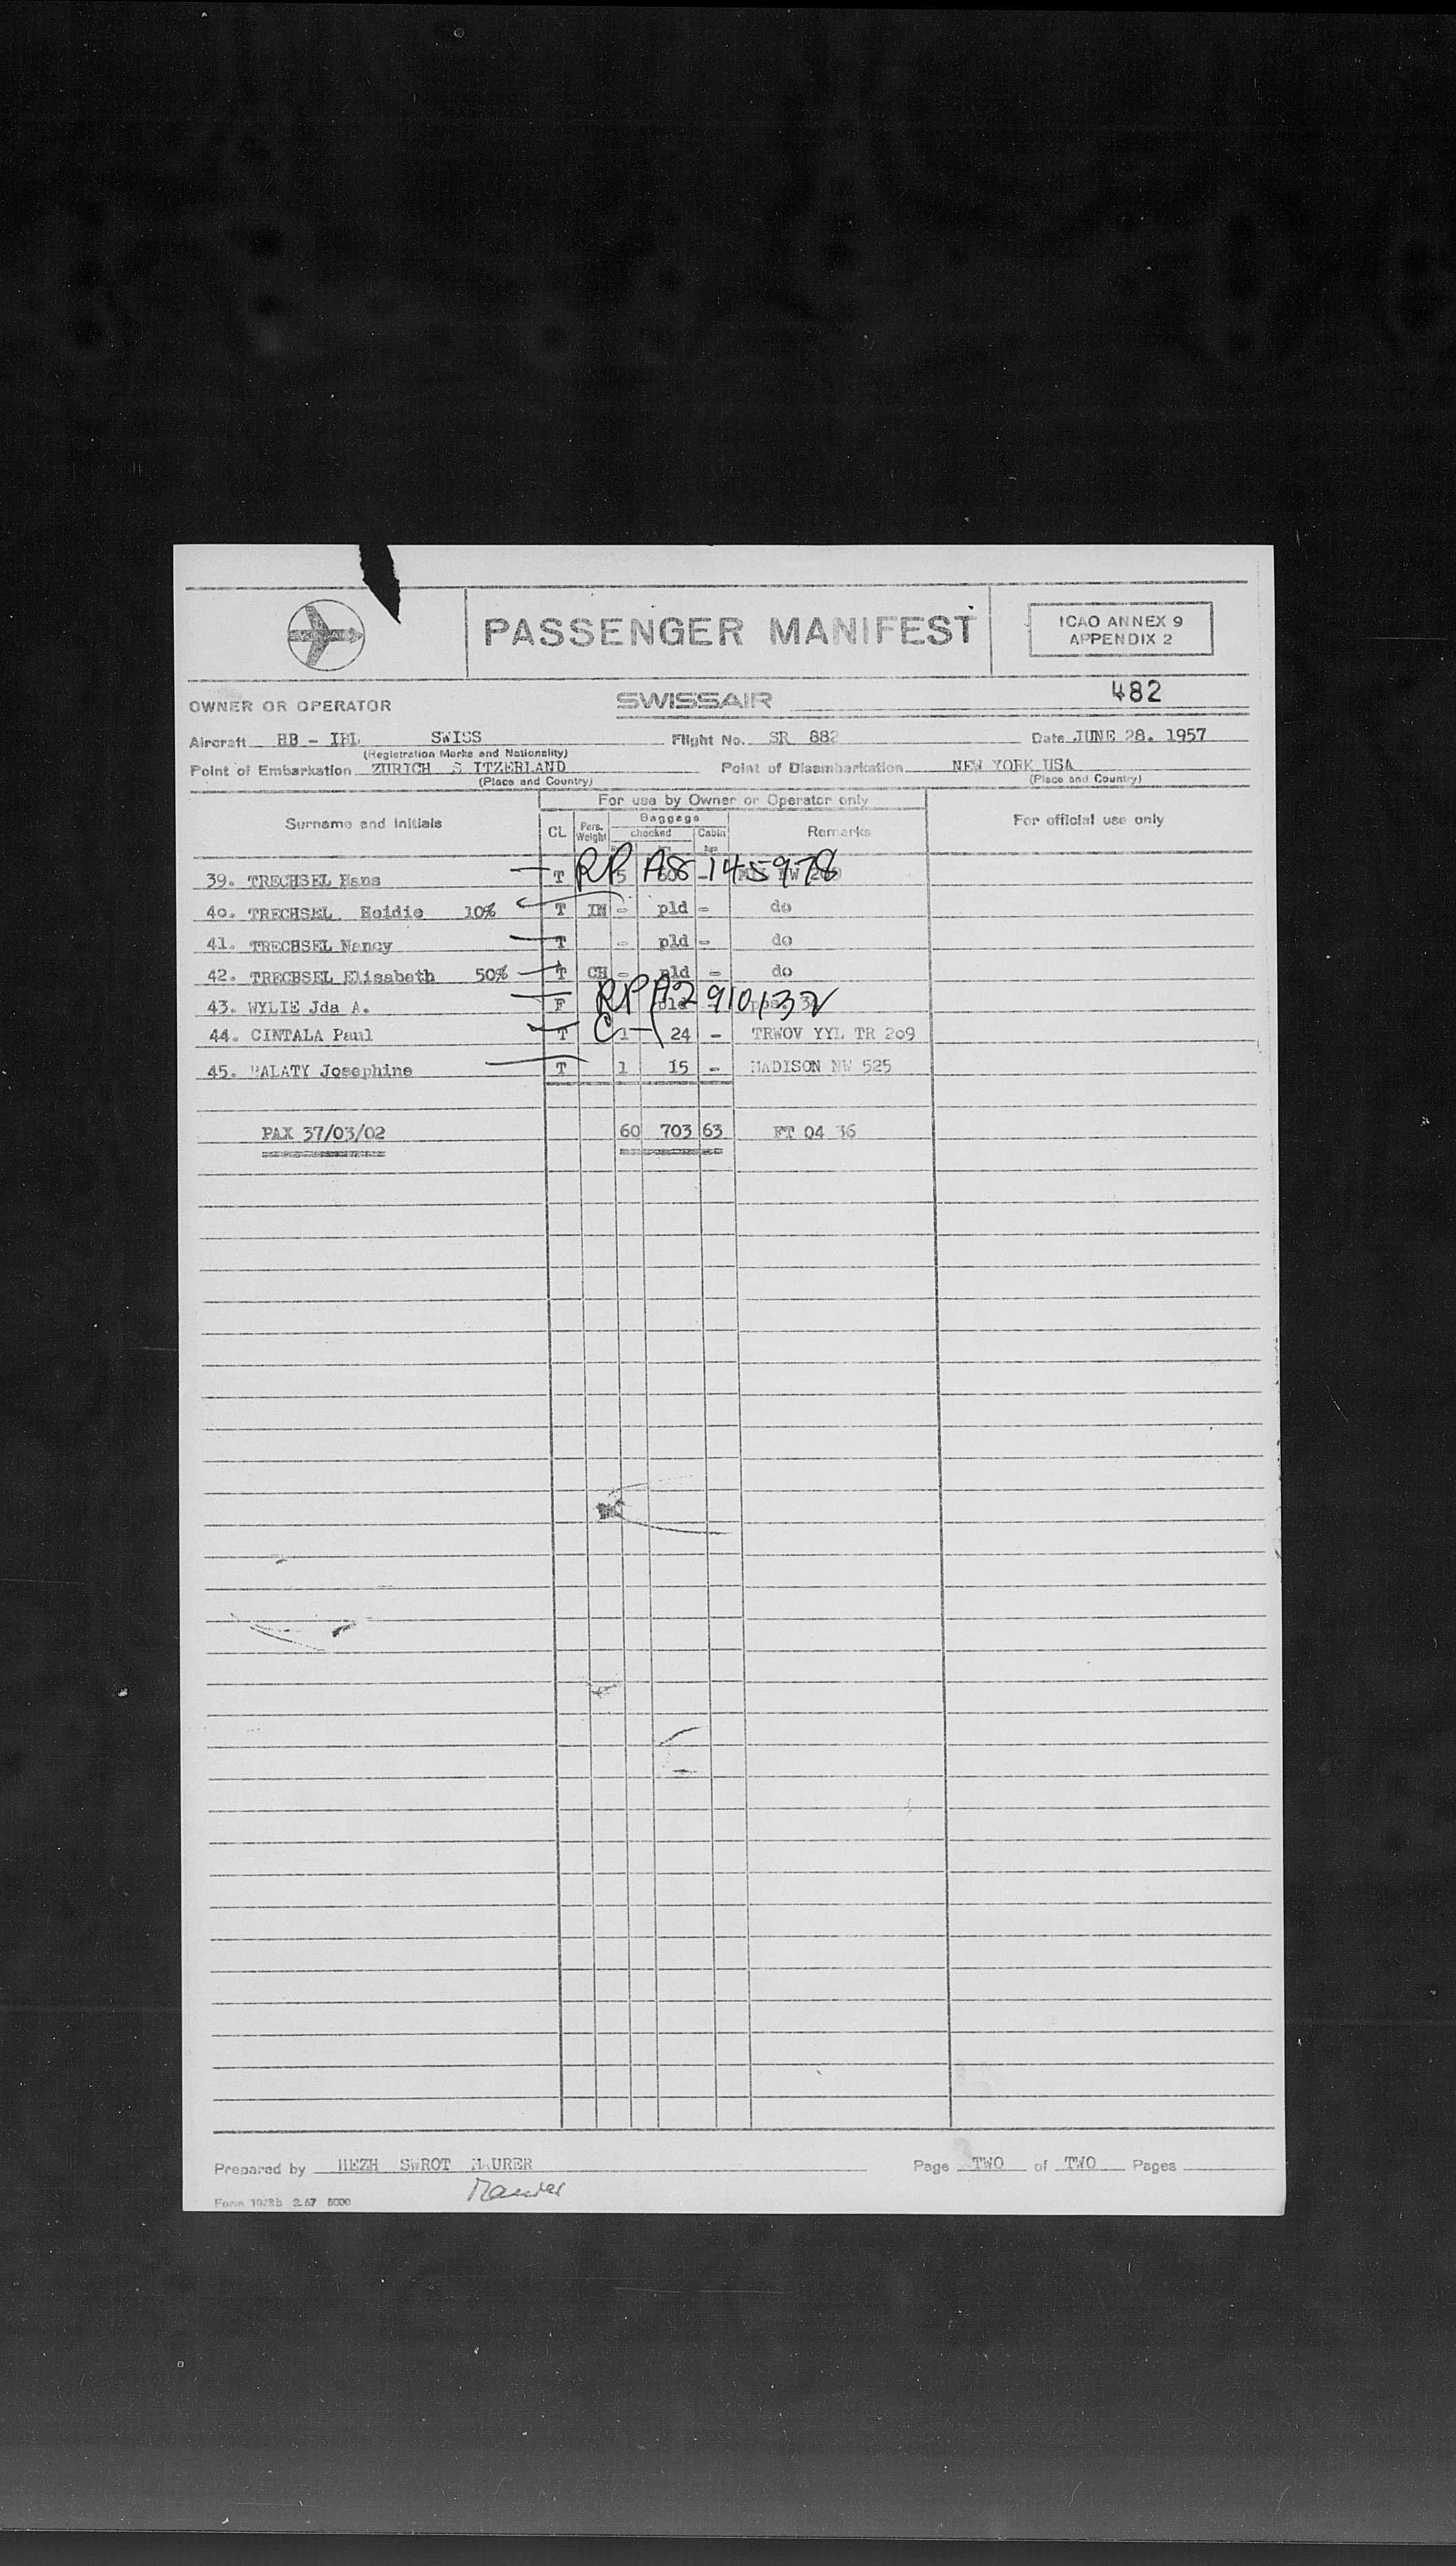 PASSENGER MANIFEST
ICAO ANNEX 9
APPENDIX 2
OWNER OR OPERATOR SWISSAIR 482
Aircraft HB - IBL SWISS Flight No. SR 882 Date JUNE 28. 1957
(Registration Marks and Nationality)
Point of Embarkation ZURICH S ITZERLAND Point of Disembarkation NEW YORK USA
(Place and Country) (Place and Country)
For use by Owner or Operator only
Surname and Initials CL Pers. Weight Baggage checked Cabin Remarks For official use only
39. TRECHSEL Hans T RP A8 145978 5
40. TRECHSEL Heidie 10% T IN - pld - do
41. TRECHSEL Nancy T - pld - do
42. TRECHSEL Elisabeth 50% T CH - pld - do
43. WYLIE Jda A. F RP A2 910132
44. CINTALA Paul T C-1 1 24 - TRWOV YYL TR 209
45. ALATY Josephine T 1 15 - MADISON NW 525
PAX 37/03/02 60 703 63 FT 04 36
Prepared by HEZH SWROT MAURER Page TWO of TWO Pages
Maurer
Form 1028b 2.57 5000